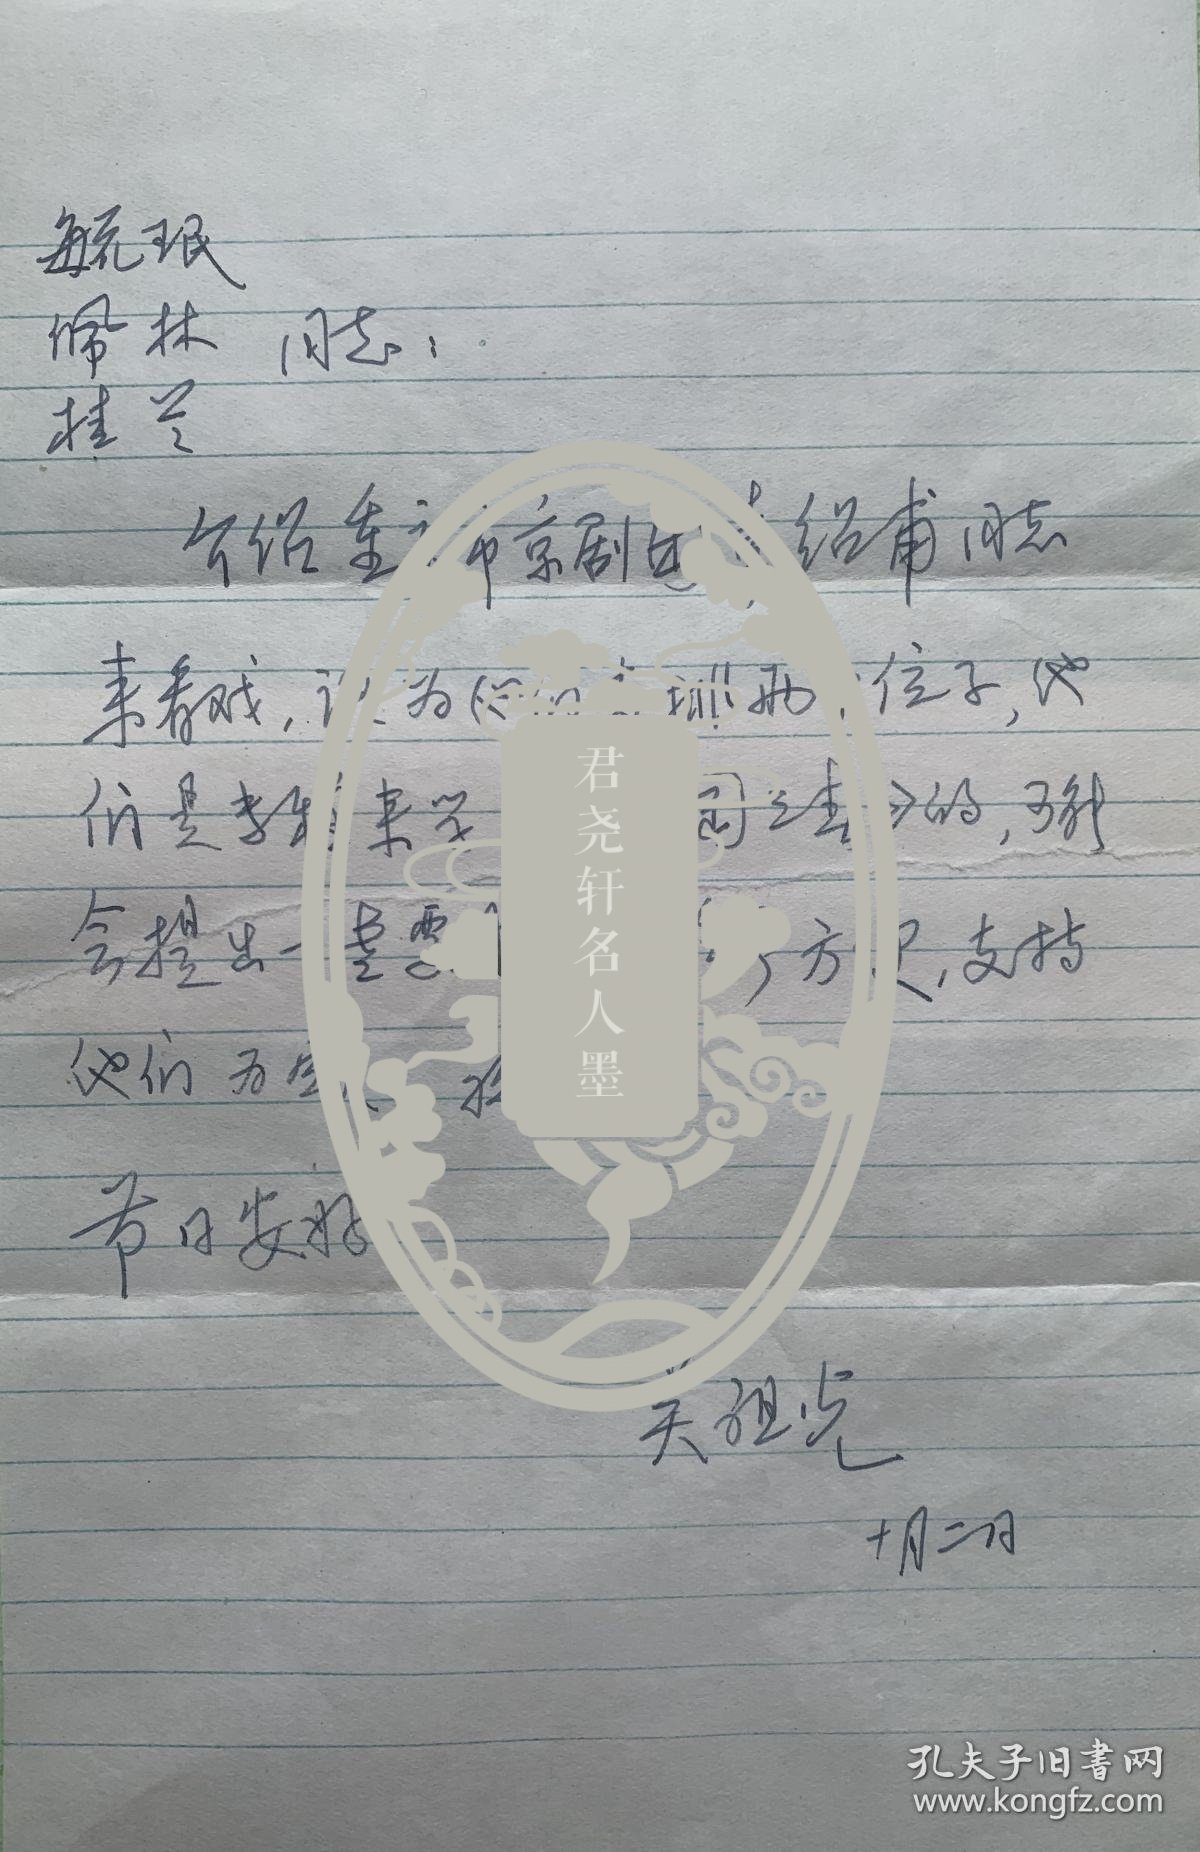 毓珉
佩林 同志：
桂兰
介绍重 市京剧团 绍甫同志
来看戏，请为他们安排两个位子，他
们是专程来学 国之春》的，可能
会提出一些要 方便，支持
他们为
节日安好
吴祖光
十月二日
君尧轩名人墨
孔夫子旧书网
www.kongfz.com